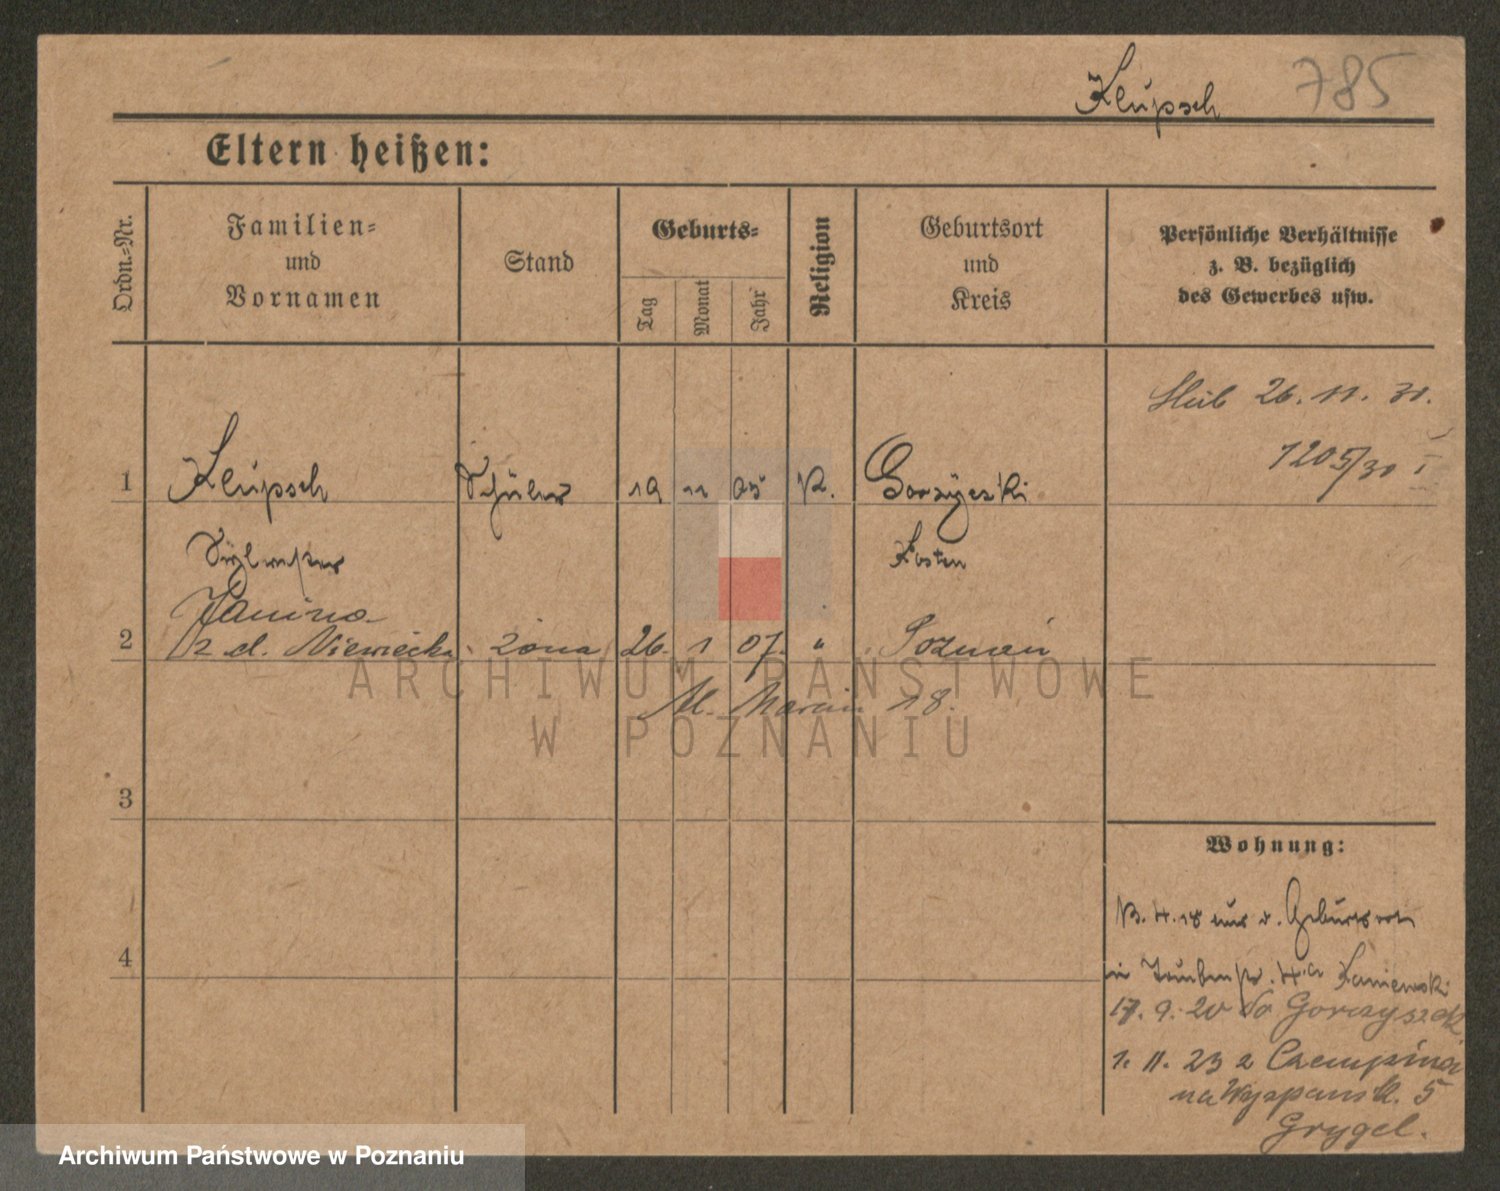 Klupsch 785
Eltern heißen:
Ordn.-Nr.
Familien=
und
Vornamen
Stand
Geburts=
Tag
Monat
Jahr
Religion
Geburtsort
und
Kreis
Persönliche Verhältnisse
z. B. bezüglich
des Gewerbes usw.
26. 11. 30.
1205/30 I
1 Klupsch Schüler 19 11 05 K.
Sylvester Kosten
Janina
2 z d. Niewiecka żona 26. 1 07. " Poznań
Marcin 18.
ARCHIWUM PAŃSTWOWE
W POZNANIU
3
Wohnung:
4
4. 18 aus d. Geburtsort
in 4a Kaniewski
17. 9. 20 do Gorzyszek
1. 11. 23 z Czempinia
na Wyspiansk. 5
Grygel.
Archiwum Państwowe w Poznaniu